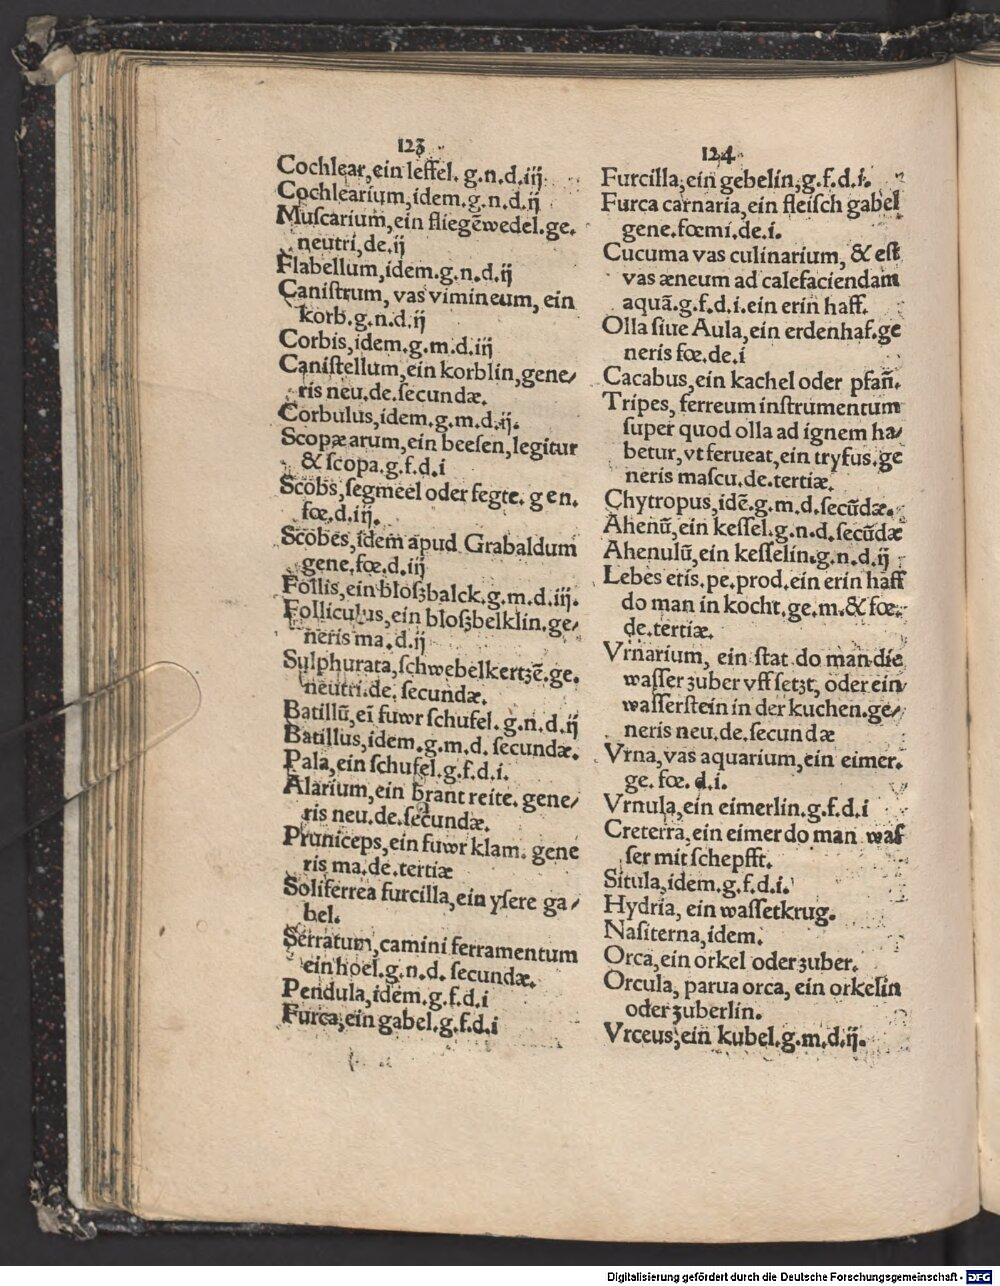 123
Cochlear,ein leffel. g.n.d.iij
Cochlearium,idem.g.n.d.ij
Muscarium,ein fliegẽwedel.ge.
neutri,de.ij
Flabellum,idem.g.n.d.ij
Canistrum, vas vimineum, ein
korb.g.n.d.ij
Corbis,idem.g.m.d.iij
Canistellum,ein korblin,gene/
ris neu.de.secundæ.
Corbulus,idem.g.m.d.ij.
Scopæ arum,ein beesen,legitur
& scopa.g.f.d.i
Scobs,segmeel oder fegte. gen.
fœ.d.iij.
Scobes,idem apud Grabaldum
gene.fœ.d.iij
Follis,ein bloßbalck.g.m.d.iij.
Folliculus,ein bloßbelklin.ge/
neris ma.d.ij
Sulphurata,schwebelkertzẽ.ge.
neutri.de.secundæ.
Batillũ,eĩ fuwr schufel.g.n.d.ij
Batillus,idem.g.m.d. secundæ.
Pala,ein schufel.g.f.d.i.
Alarium,ein brant reite. gene/
ris neu.de.secundæ.
Pruniceps,ein fuwr klam. gene
ris ma.de.tertiæ
Soliferrea furcilla,ein ysere ga/
bel.
Serratum,camini ferramentum
ein hoel.g.n.d. secundæ.
Pendula,idem.g.f.d.i
Furca,ein gabel.g.f.d.i
124
Furcilla,ein gebelin,g.f.d.i.
Furca carnaria,ein fleisch gabel
gene.fœmi.de.i.
Cucuma vas culinarium, & est
vas æneum ad calefaciendam
aquã.g.f.d.i.ein erin haff.
Olla siue Aula,ein erdenhaf.ge
neris fœ.de.i
Cacabus,ein kachel oder pfañ.
Tripes, ferreum instrumentum
super quod olla ad ignem ha/
betur,vt ferueat,ein tryfus.ge
neris mascu.de.tertiæ.
Chytropus,idẽ.g.m.d.secũdæ.
Ahenũ,ein kessel.g.n.d.secũdæ
Ahenulũ,ein kesselin.g.n.d.ij
Lebes etis.pe.prod.ein erin haff
do man in kocht.ge.m.& fœ.
de.tertiæ.
Vrnarium, ein stat do man die
wasser zuber vff setzt, oder ein
wasserstein in der kuchen.ge/
neris neu.de.secundæ
Vrna,vas aquarium,ein eimer.
ge. fœ. d.i.
Vrnula,ein eimerlin.g.f.d.i
Creterra,ein eimer do man was
ser mit schepfft.
Situla,idem.g.f.d.i.
Hydria, ein wassetkrug.
Nasiterna,idem.
Orca,ein orkel oder zuber.
Orcula, parua orca, ein orkelin
oder zuberlin.
Vrceus,ein kubel.g.m.d.ij.
Digitalisierung gefördert durch die Deutsche Forschungsgemeinschaft - DFG